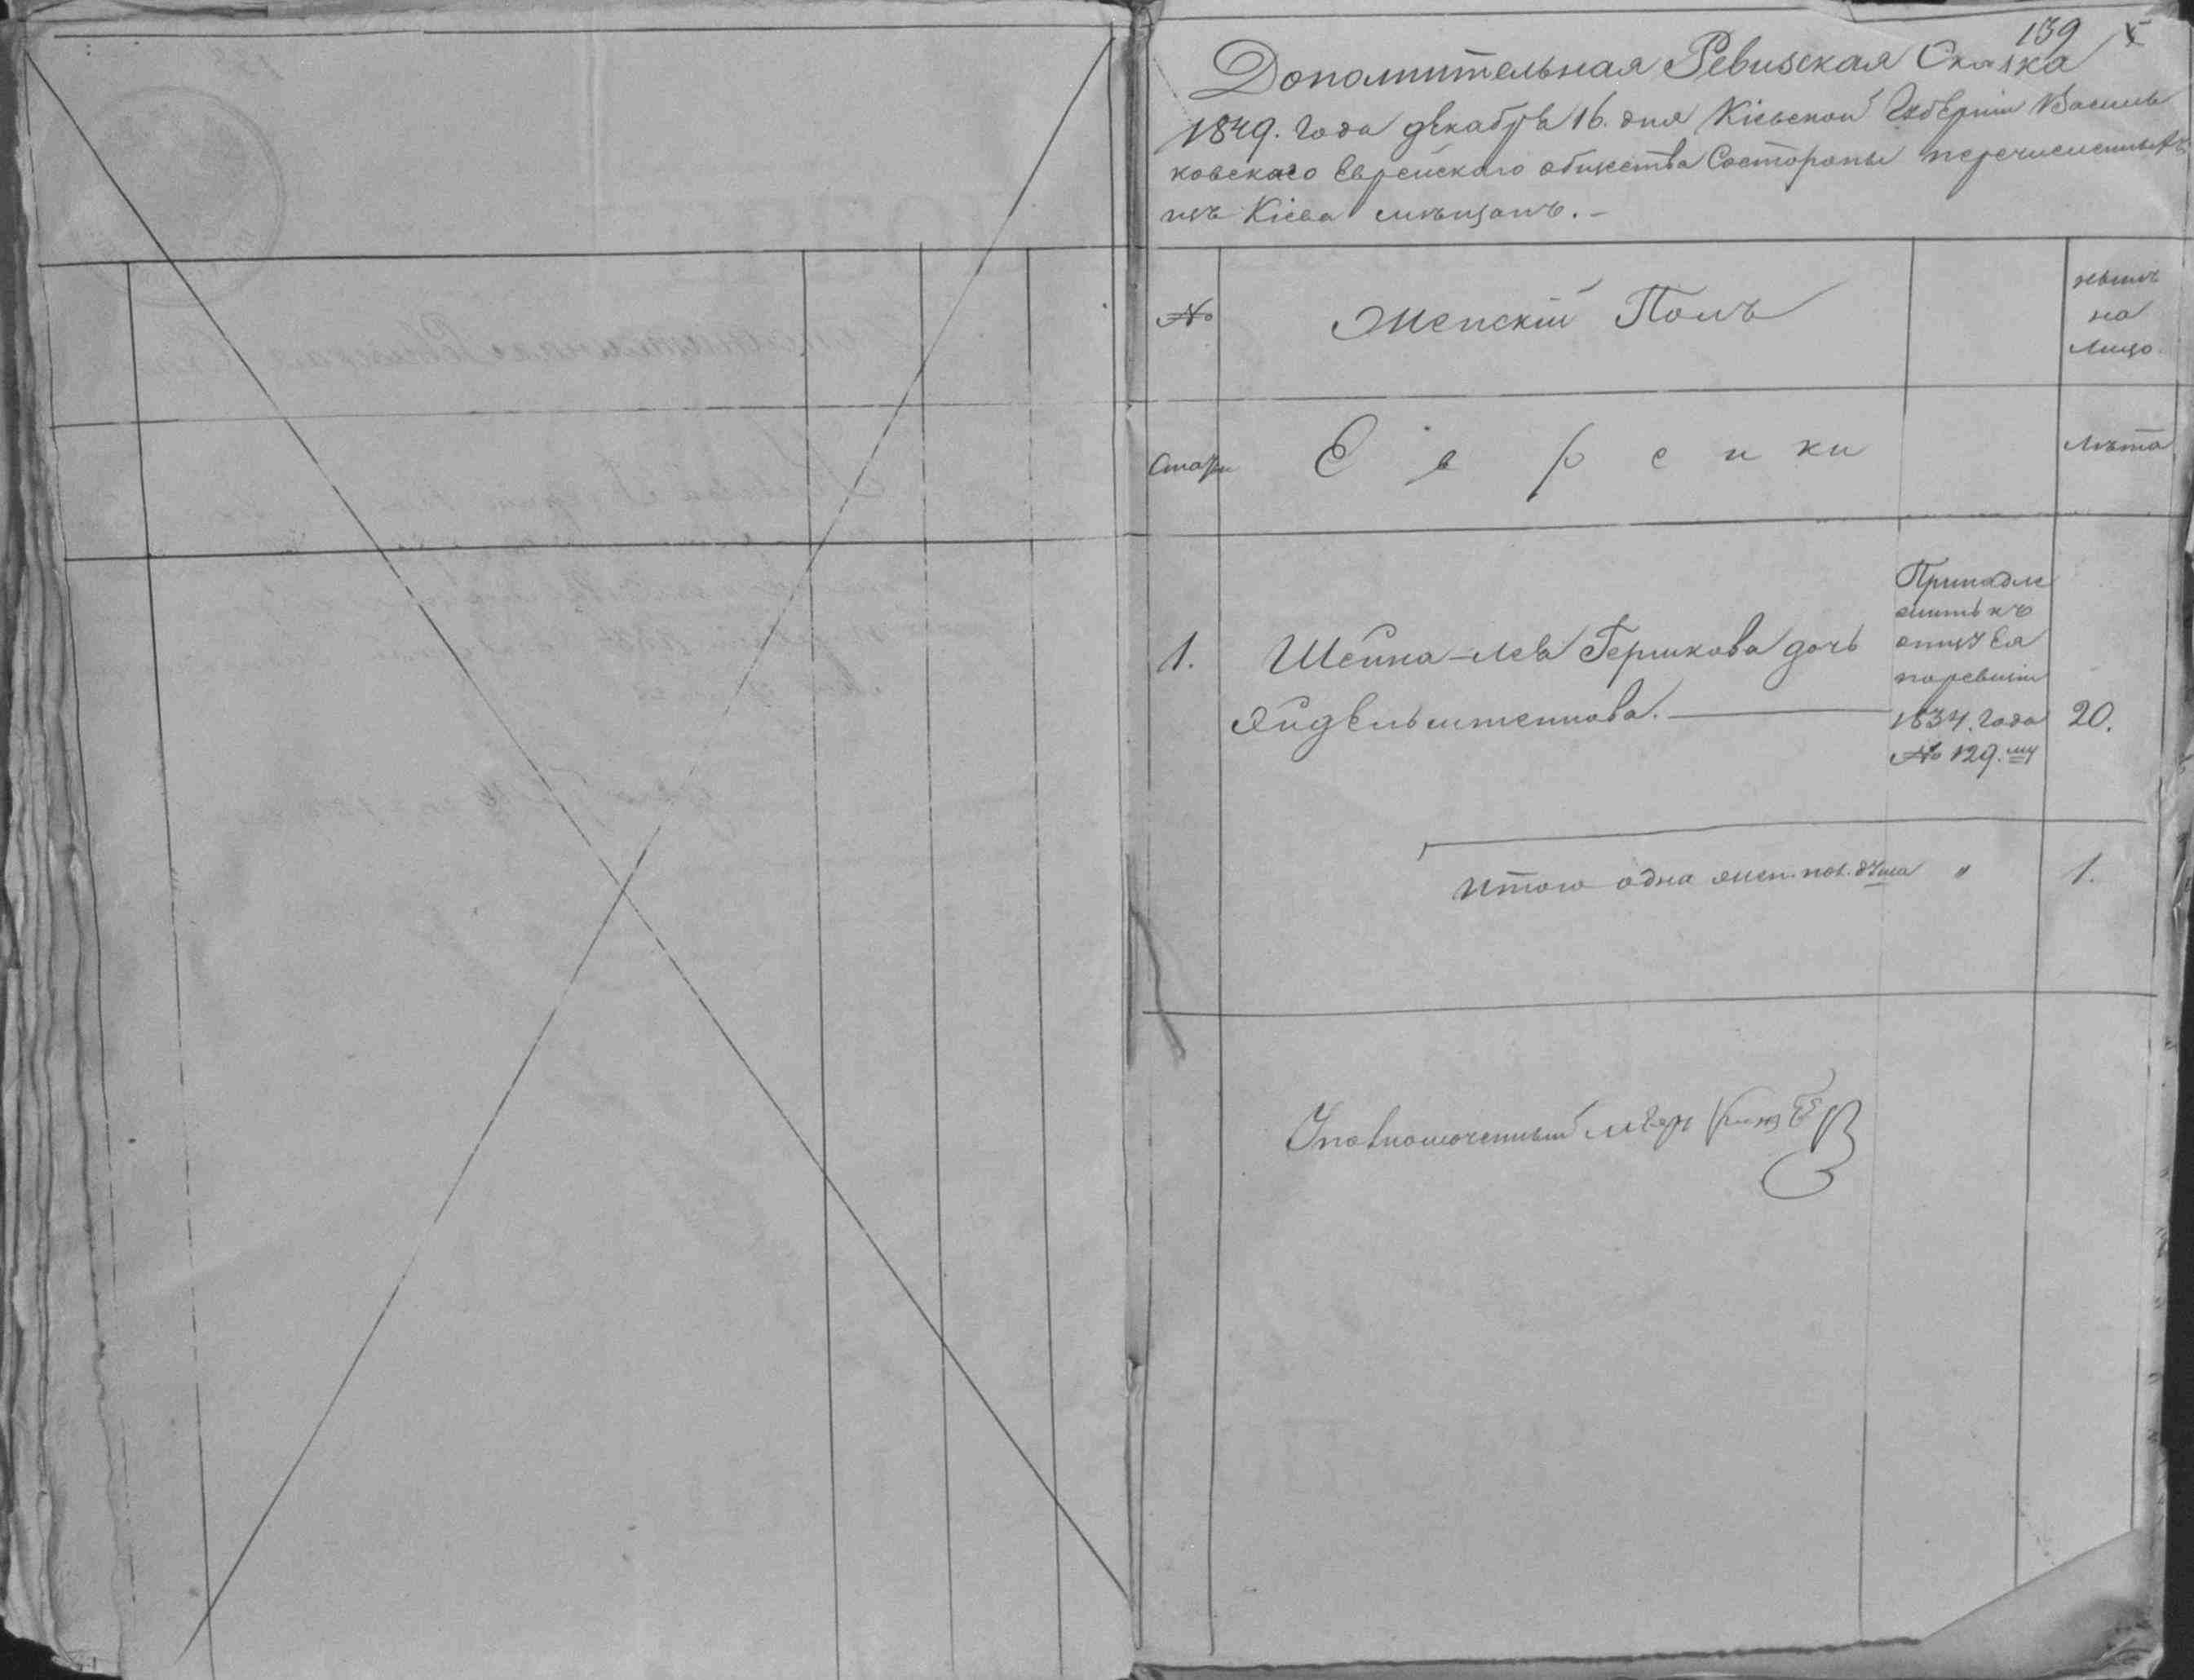 139
Дополнительная Ревизская Сказка
1849. Года декабря 16. дня Кіевской Губерніи Василь
ковскаго Еврейскаго общества Состороны перечисленныхъ
изъ Кіева мѣщанъ.
№
Женскій Полъ
нынѣ
на
лицо
Е в р е й к и
лѣта
1.
Шейна-Леа Гершкова дочь
Принадле
житъ къ
отцу Ея
поревизіи
1834. Года
№ 129.му
Айдельштейнова.
20.
Итого одна жен. пол. душа " 1.
Уполномоченный